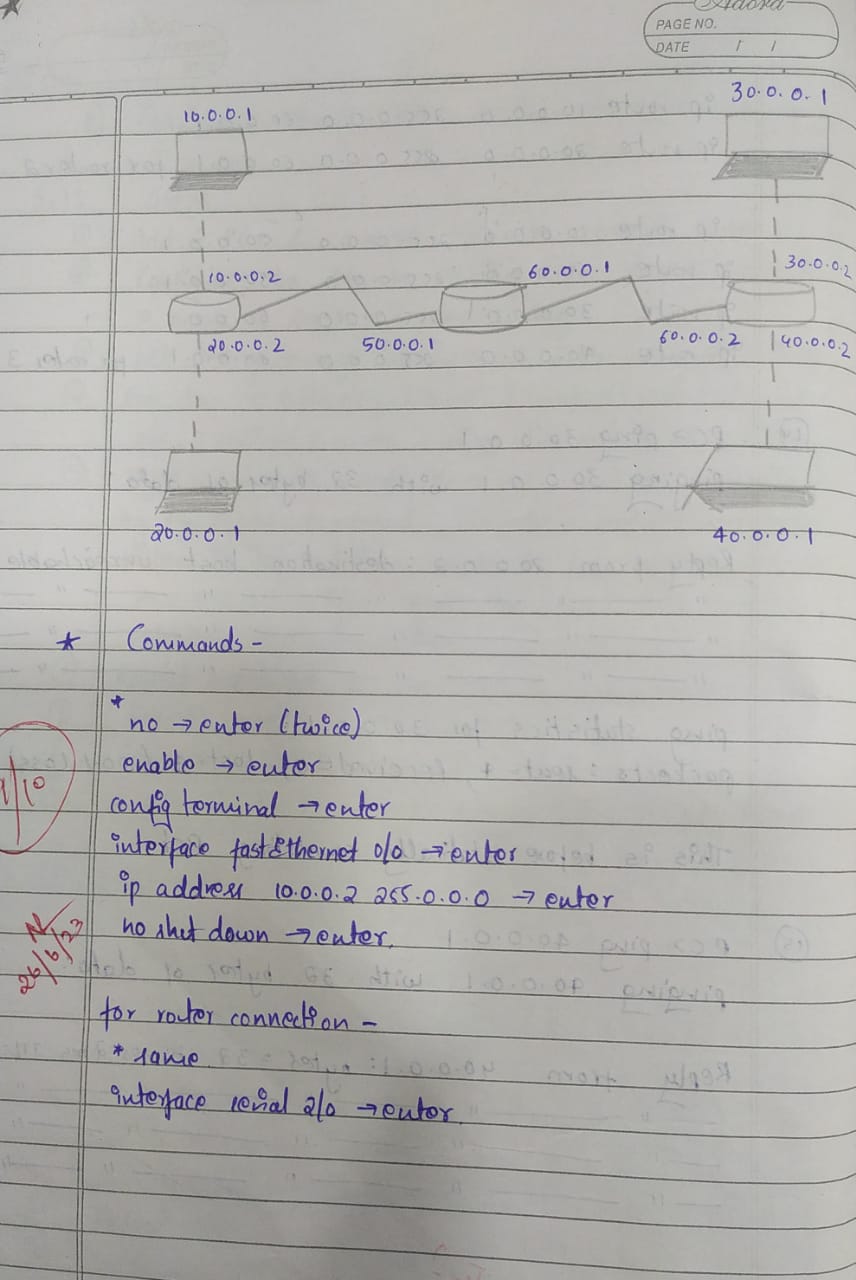 Adora
PAGE NO.
DATE / /
10.0.0.1
30.0.0.1
10.0.0.2
60.0.0.1
30.0.0.2
20.0.0.2
50.0.0.1
60.0.0.2
40.0.0.2
20.0.0.1
40.0.0.1
* Commands -
*
no → enter (twice)
enable → enter
config terminal → enter
/10
interface fastEthernet 0/0 → enter
ip address 10.0.0.2 255.0.0.0 → enter
no shut down → enter.
26/6/23
for router connection -
* same
interface serial 2/0 → enter.